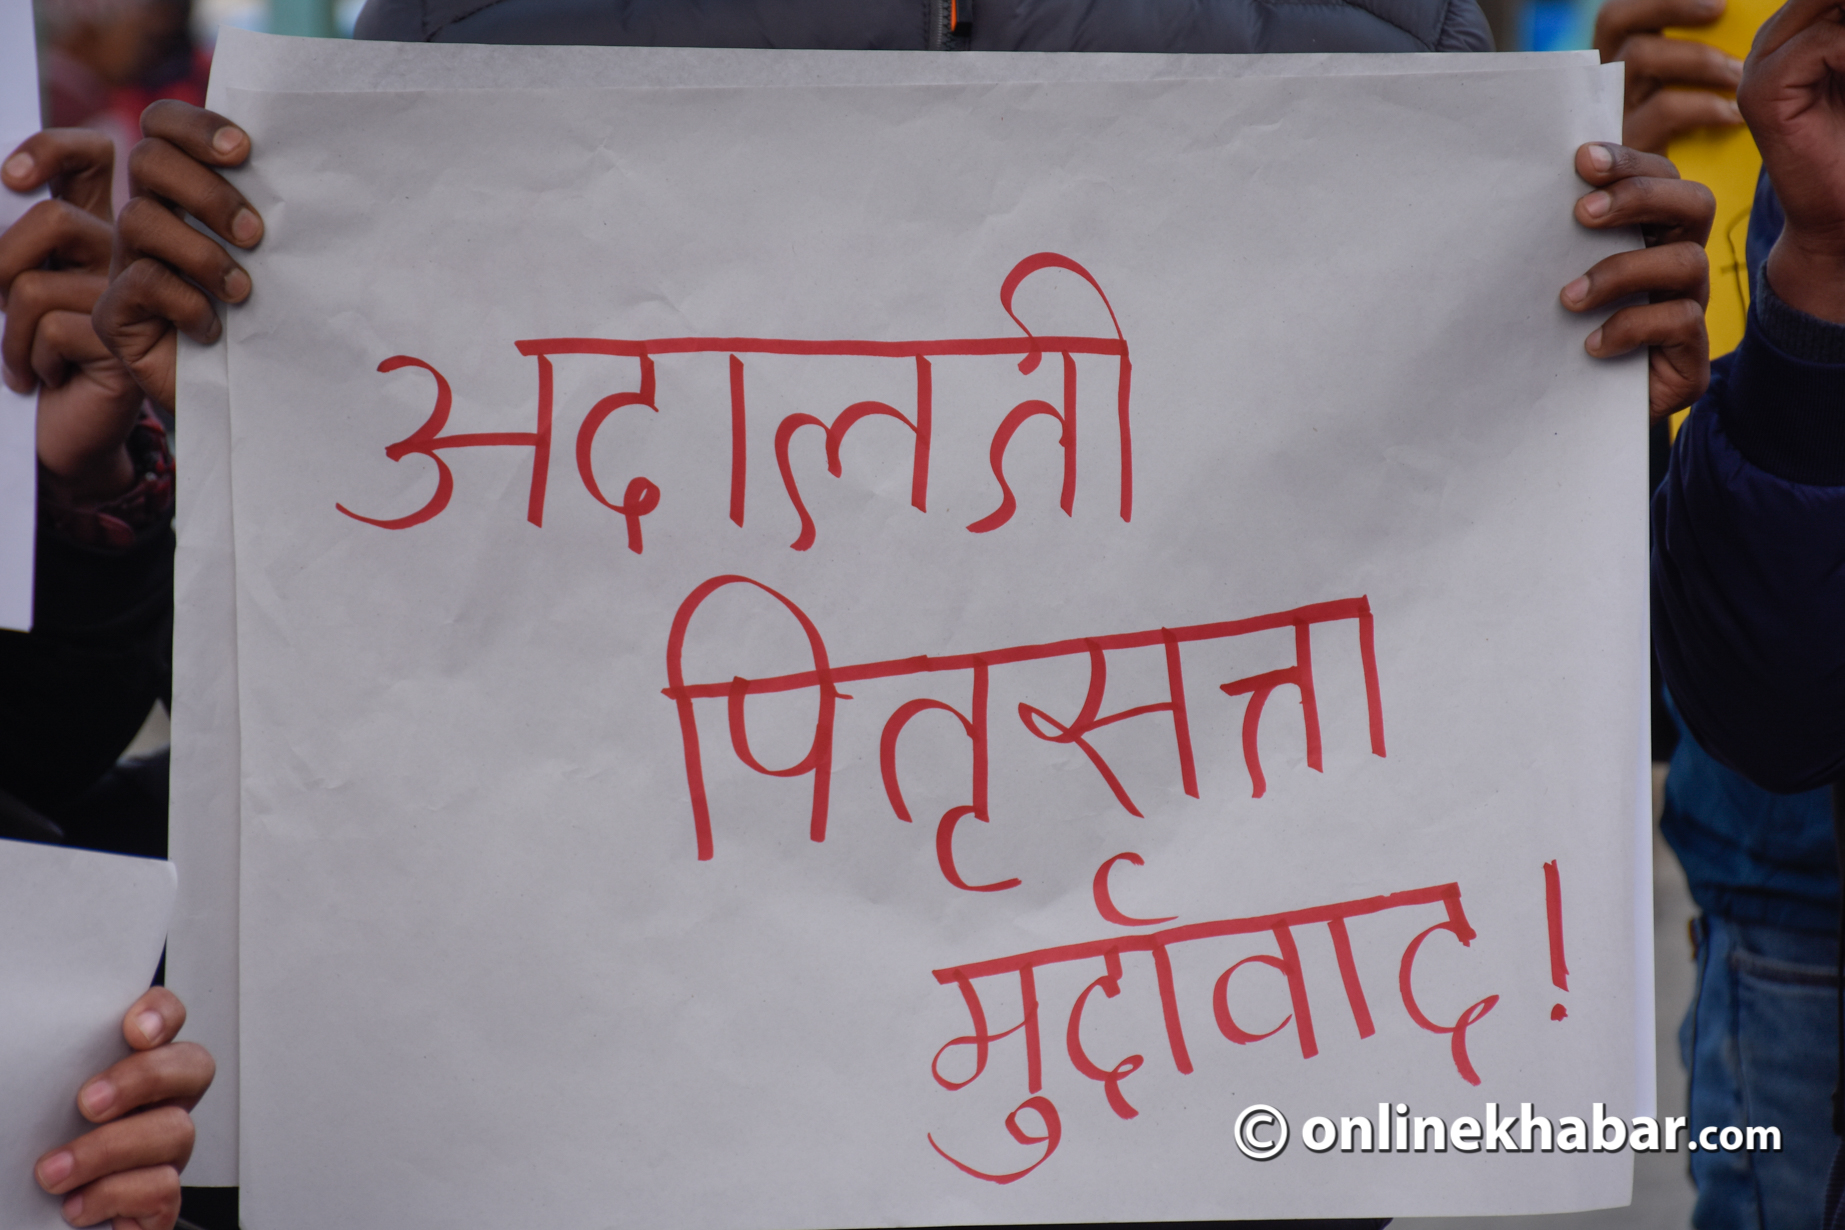 अदालती
पितृसत्ता
मुर्दावाद!
© onlinekhabar.com